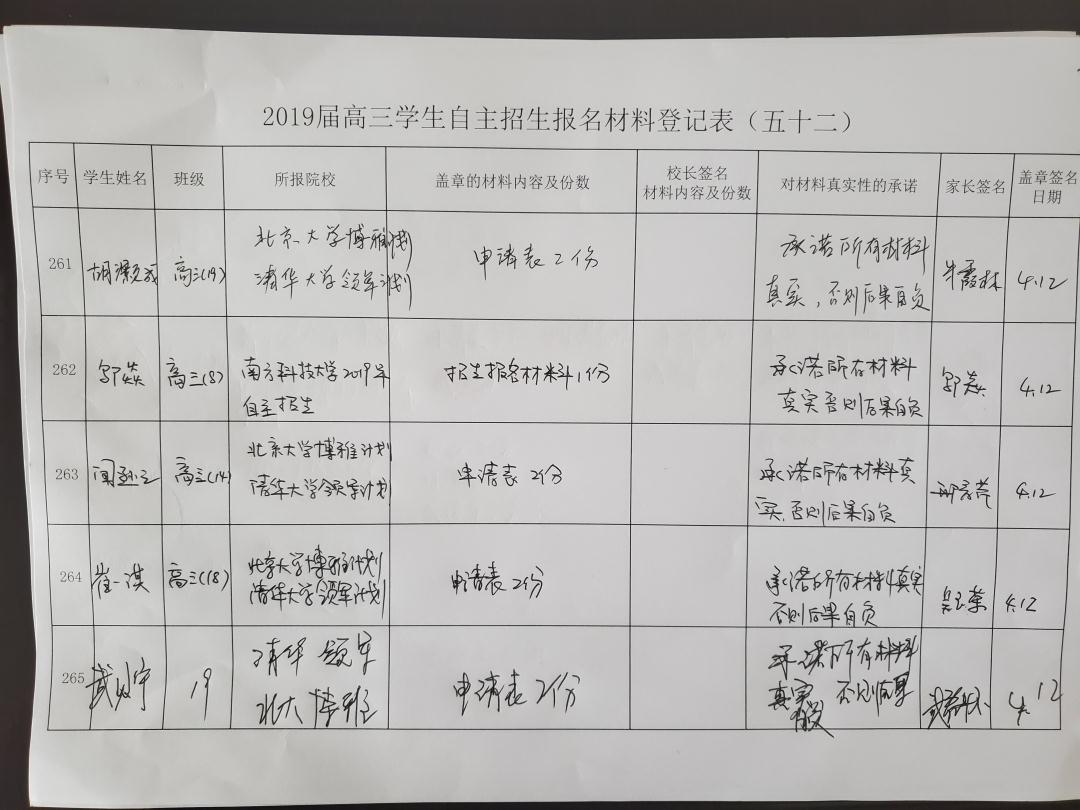 2019届高三学生自主招生报名材料登记表（五十二）
序号 学生姓名 班级 所报院校 盖章的材料内容及份数 校长签名 材料内容及份数 对材料真实性的承诺 家长签名 盖章签名 日期
261 胡灏成 高三(19) 北京大学博雅计划 申请表2份 承诺所有材料 朱霞林 4.12
清华大学领军计划 真实，否则后果自负
262 高三(8) 南方科技大学2019年 招生报名材料1份 承诺所有材料 4.12
自主招生 真实否则后果自负
263 高三(14) 北京大学博雅计划 申请表 2份 承诺所有材料真 4.12
清华大学领军计划 实，否则后果自负
264 崔一淇 高三(18) 北京大学博雅计划 申请表2份 承诺所有材料真实 4.12
清华大学领军计划 否则后果自负
265 19 清华 领军 申请表 2份 承诺所有材料 4.12
北大 博雅 真实 否则后果
自负